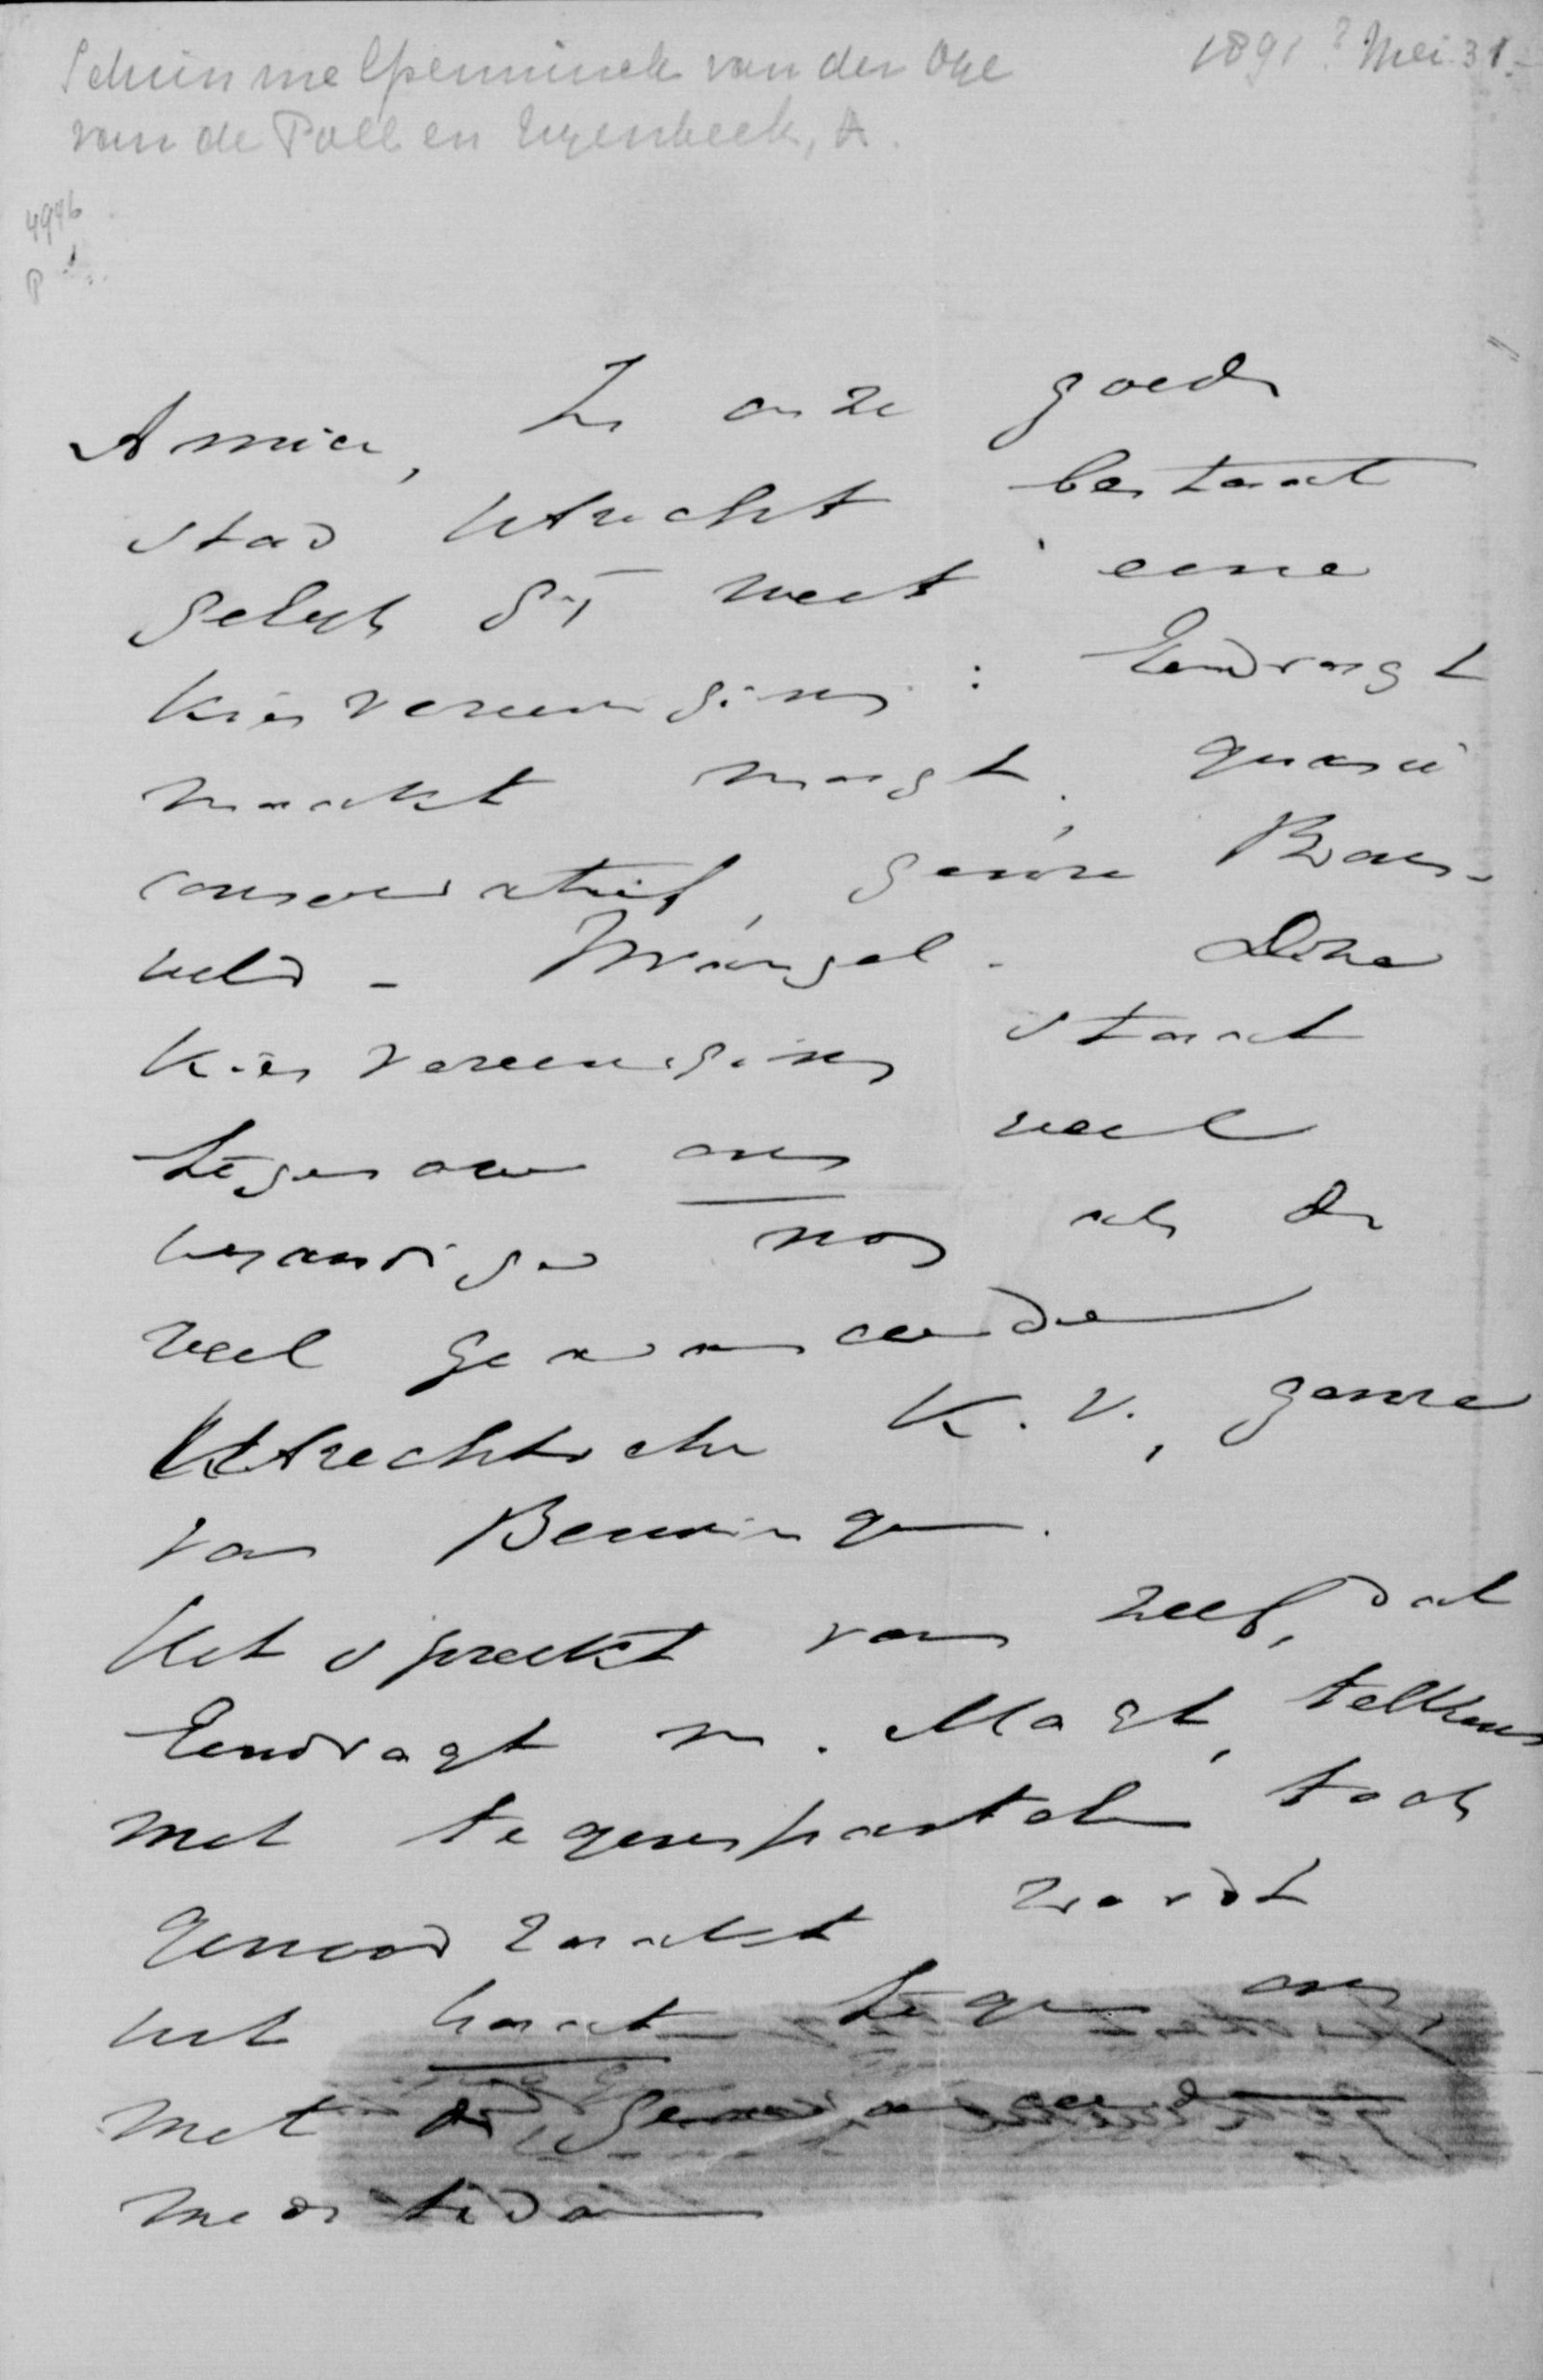 Schimmelpenninck van der Oye
van de Poll en Nyenbeek, A.
1891? Mei 31.
4946
P
Amice, In onze goede
stad Utrecht bestaat
gelijk gij weet eene
kiesvereeniging: Eendragt
maakt magt, quasi
conservatief, genre Boes-
veld - Wrangel. Deze
kiesvereeniging staat
tegenover ons veel
vyandiger nog als de
veel geavanceerde
Utrechtsche K.V., genre
van Beuningen.
Het spreekt van zelf, dat
Eendragt m. Magt, telkens
met tegenpartij toch
genoodzaakt wordt
het haat tegen ons,
met de geavanceerde
mede te doen